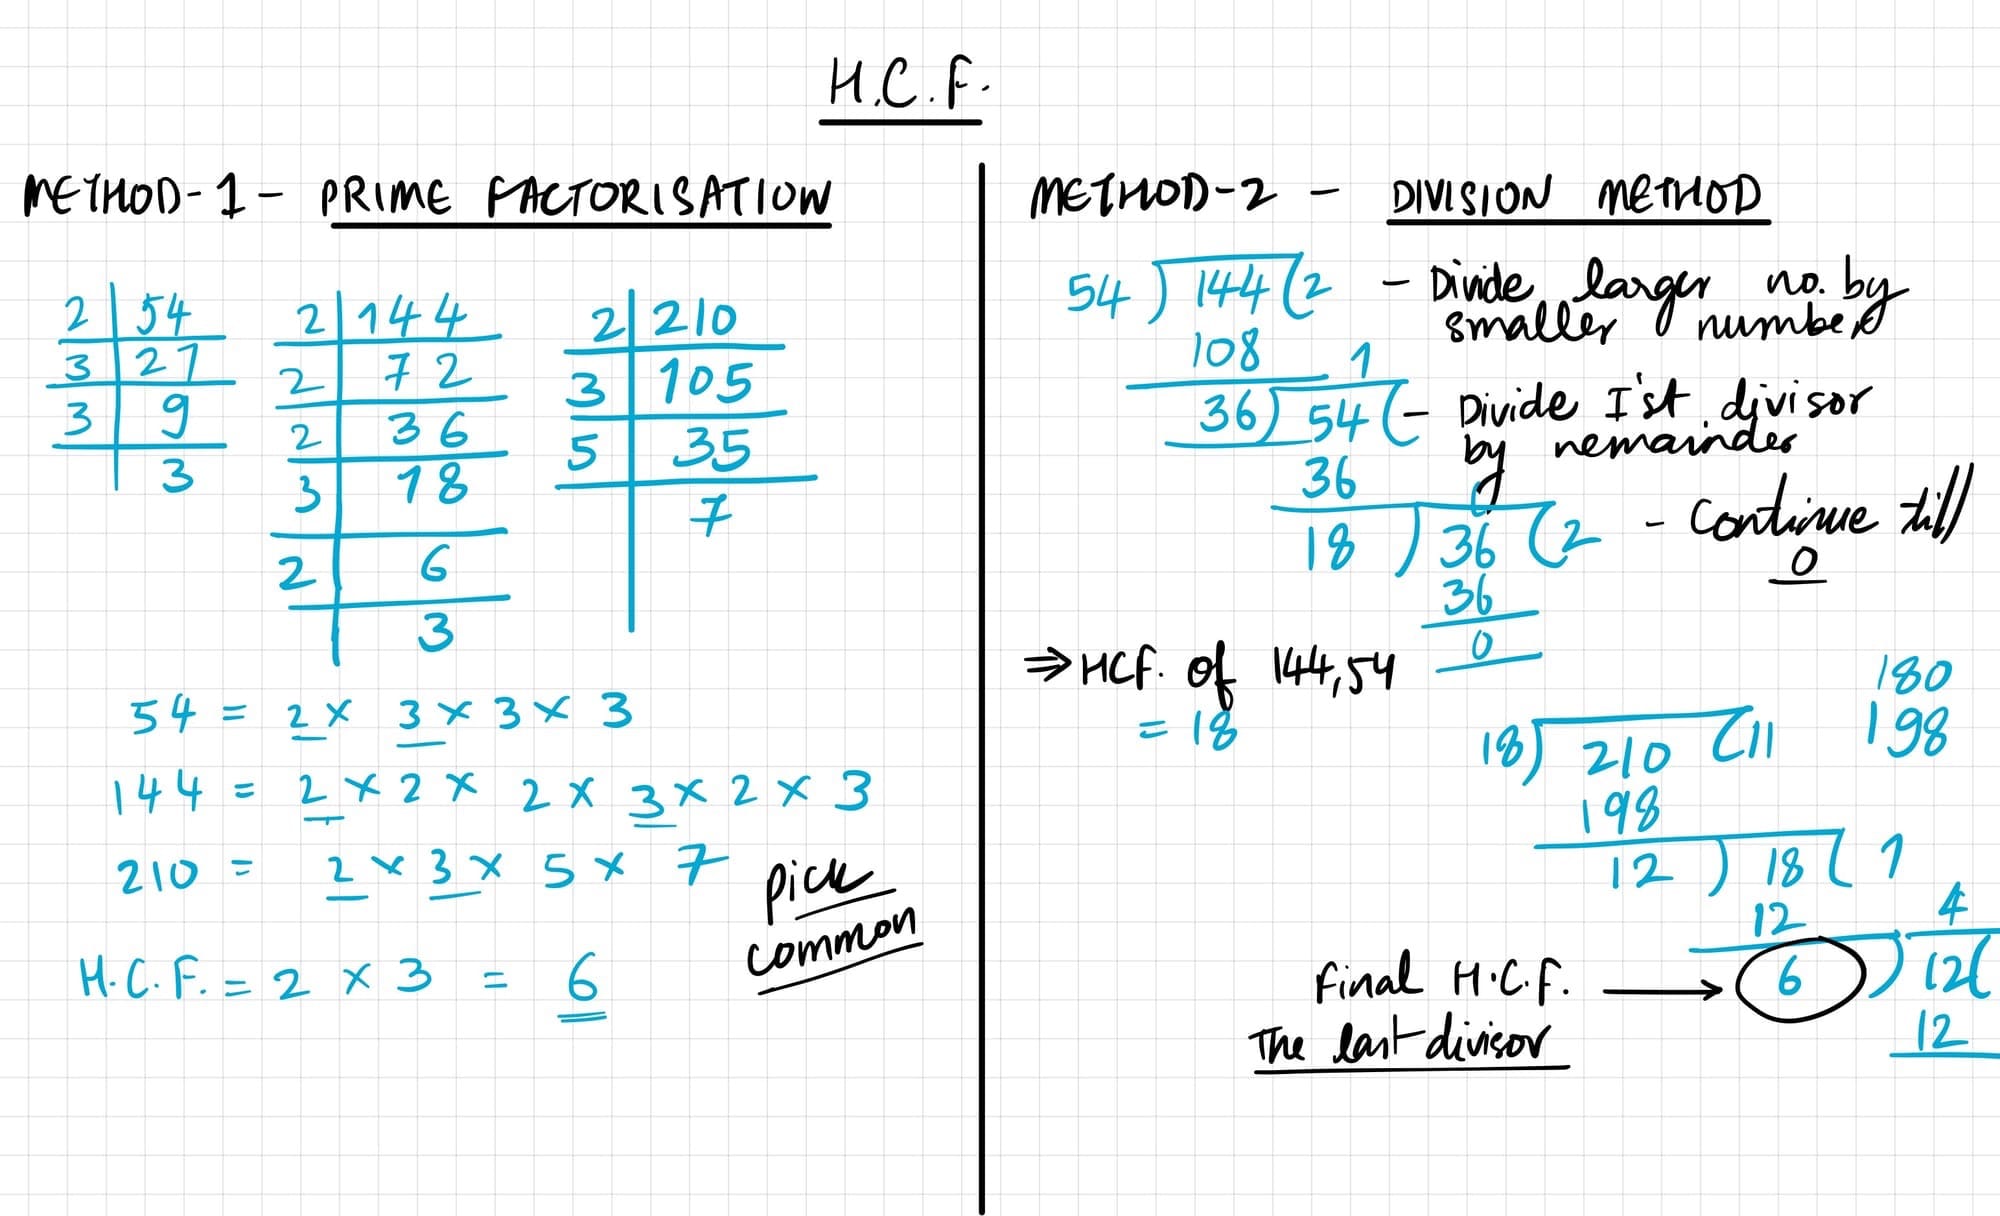 H.C.F.
METHOD-1- PRIME FACTORISATION
2 54
3 27
3 9
3
2 144
2 72
2 36
3 18
2 6
3
2 210
3 105
5 35
7
54 = 2 × 3 × 3 × 3
144 = 2 × 2 × 2 × 3 × 2 × 3
210 = 2 × 3 × 5 × 7
Pick
common
H.C.F. = 2 × 3 = 6
METHOD-2 - DIVISION METHOD
54 ) 144 ( 2 - Divide larger no. by
smaller number
108 1
36 ) 54 ( - Divide I'st divisor
by remainder
36
18 ) 36 ( 2 - Continue till
0
36
0
⇒ HCF. of 144,54
= 18
180
198
18 ) 210 ( 11
198
12 ) 18 ( 1
12 4
Final H.C.F. → 6 ) 12 (
The last divisor 12